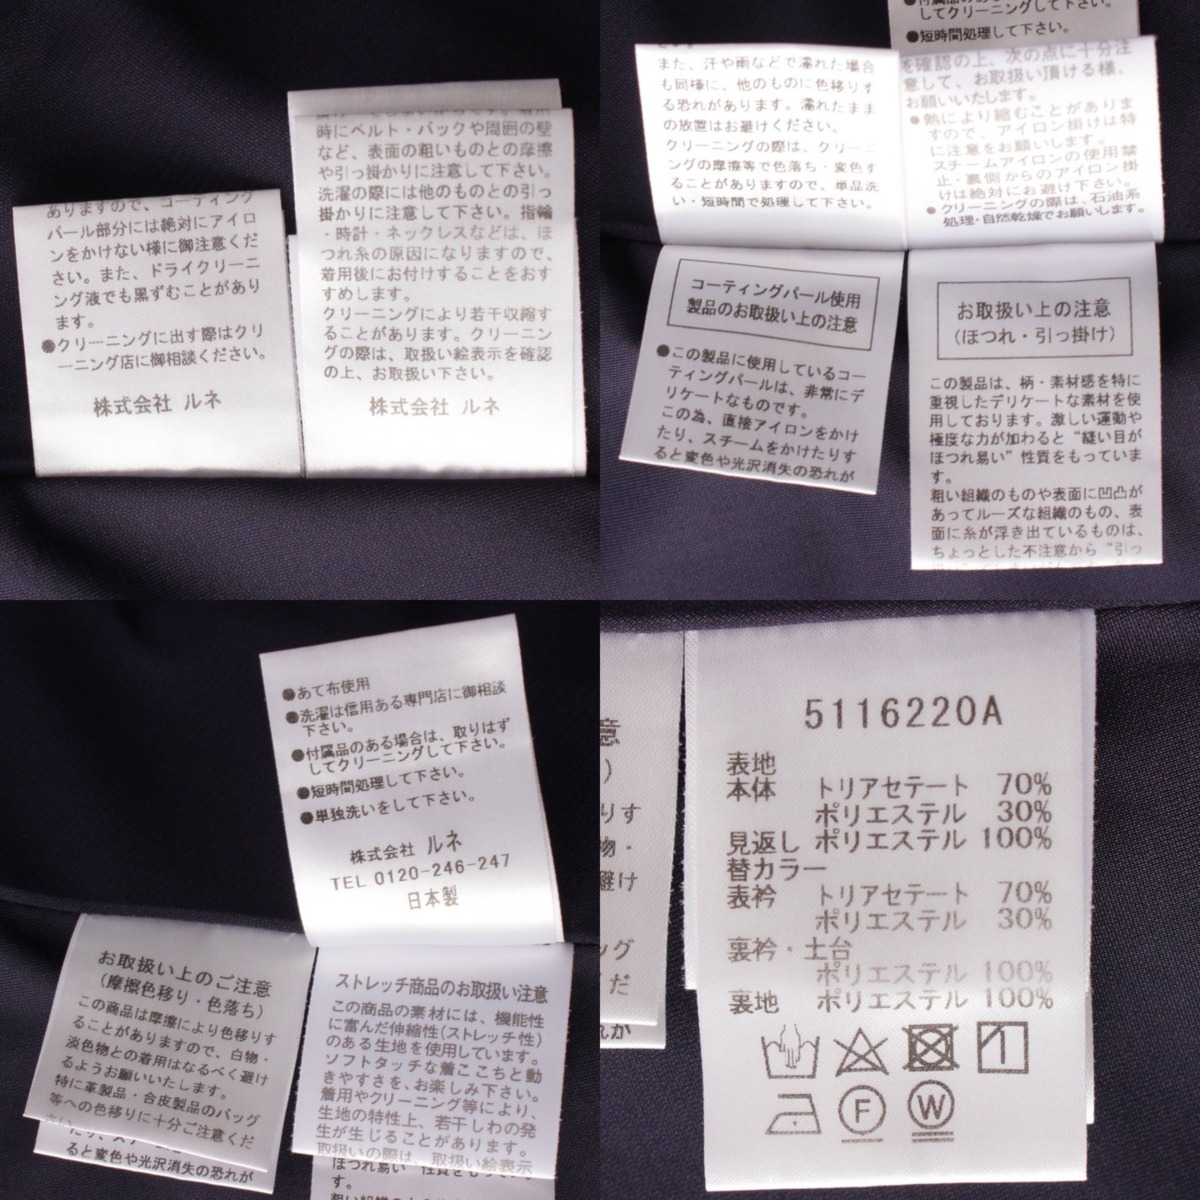 ありますので、コーティング
パール部分には絶対にアイロ
ンをかけない様に御注意くだ
さい。また、ドライクリーニ
ング液でも黒ずむことがあり
ます。
●クリーニングに出す際はクリ
ーニング店に御相談ください。
株式会社 ルネ
時にベルト・バックや周囲の壁
など、表面の粗いものとの摩擦
や引っ掛かりに注意して下さい。
洗濯の際には他のものとの引っ
掛かりに注意して下さい。指輪
・時計・ネックレスなどは、ほ
つれ糸の原因になりますので、
着用後にお付けすることをおす
すめします。
クリーニングにより若干収縮す
ることがあります。クリーニン
グの際は、取扱い絵表示を確認
の上、お取扱い下さい。
株式会社 ルネ
してクリーニングして下さい。
●短時間処理して下さい。
また、汗や雨などで濡れた場合
も同様に、他のものに色移りす
る恐れがあります。濡れたまま
の放置はお避けください。
クリーニングの際は、クリーニ
ングの摩擦等で色落ち・変色す
ることがありますので、単品洗
い・短時間で処理して下さい。
を確認の上、次の点に十分注
意して、お取扱い頂ける様、
お願いいたします。
●熱により縮むことがありま
すので、アイロン掛けは特
に注意をお願いします。
スチームアイロンの使用禁
止・裏側からのアイロン掛
けは絶対にお避け下さい。
●クリーニングの際は、石油系
処理・自然乾燥でお願いします。
コーティングパール使用
製品のお取扱い上の注意
●この製品に使用しているコー
ティングパールは、非常にデ
リケートなものです。
この為、直接アイロンをかけ
たり、スチームをかけたりす
ると変色や光沢消失の恐れが
お取扱い上の注意
(ほつれ・引っ掛け)
この製品は、柄・素材感を特に
重視したデリケートな素材を使
用しております。激しい運動や
極度な力が加わると“縫い目が
ほつれ易い”性質をもっていま
す。
粗い組織のものや表面に凹凸が
あってルーズな組織のもの、表
面に糸が浮き出ているものは、
ちょっとした不注意から“引っ
●あて布使用
●洗濯は信用ある専門店に御相談
下さい。
●付属品のある場合は、取りはず
してクリーニングして下さい。
●短時間処理して下さい。
●単独洗いをして下さい。
株式会社 ルネ
TEL 0120-246-247
日本製
お取扱い上のご注意
(摩擦色移り・色落ち)
この商品は摩擦により色移りす
ることがありますので、白物・
淡色物との着用はなるべく避け
るようお願いいたします。
特に革製品・合皮製品のバッグ
等への色移りに十分ご注意くだ
ると変色や光沢消失の恐れが
ストレッチ商品のお取扱い注意
この商品の素材には、機能性
に富んだ伸縮性(ストレッチ性)
のある生地を使用しています。
ソフトタッチな着ここちと動
きやすさを、お楽しみ下さい。
着用やクリーニング等により、
生地の特性上、若干しわの発
生が生じることがあります。
取扱いの際は、取扱い絵表示
ほつれ易い”性質をもっていま
意
)
りす
物・
避け
ッグ
だ
れが
5116220A
表地
本体 トリアセテート 70%
ポリエステル 30%
見返し ポリエステル 100%
替カラー
表衿 トリアセテート 70%
ポリエステル 30%
裏衿・土台
ポリエステル 100%
裏地 ポリエステル 100%
F
W